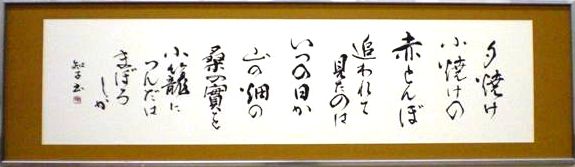 夕焼け
小焼けの
赤とんぼ
追われて
見たのは
いつの日か
山の畑の
桑の實を
小籠に
つんだは
まぼろ
しか